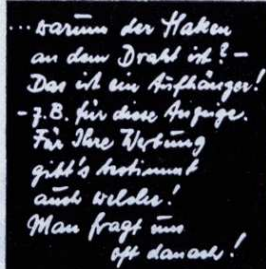 ...warum der Haken
an dem Draht ist? -
Das ist ein Aufhänger!
- z.B. für diese Anzeige.
Für Ihre Werbung
gibt's bestimmt
auch welche!
Man fragt uns
oft danach!